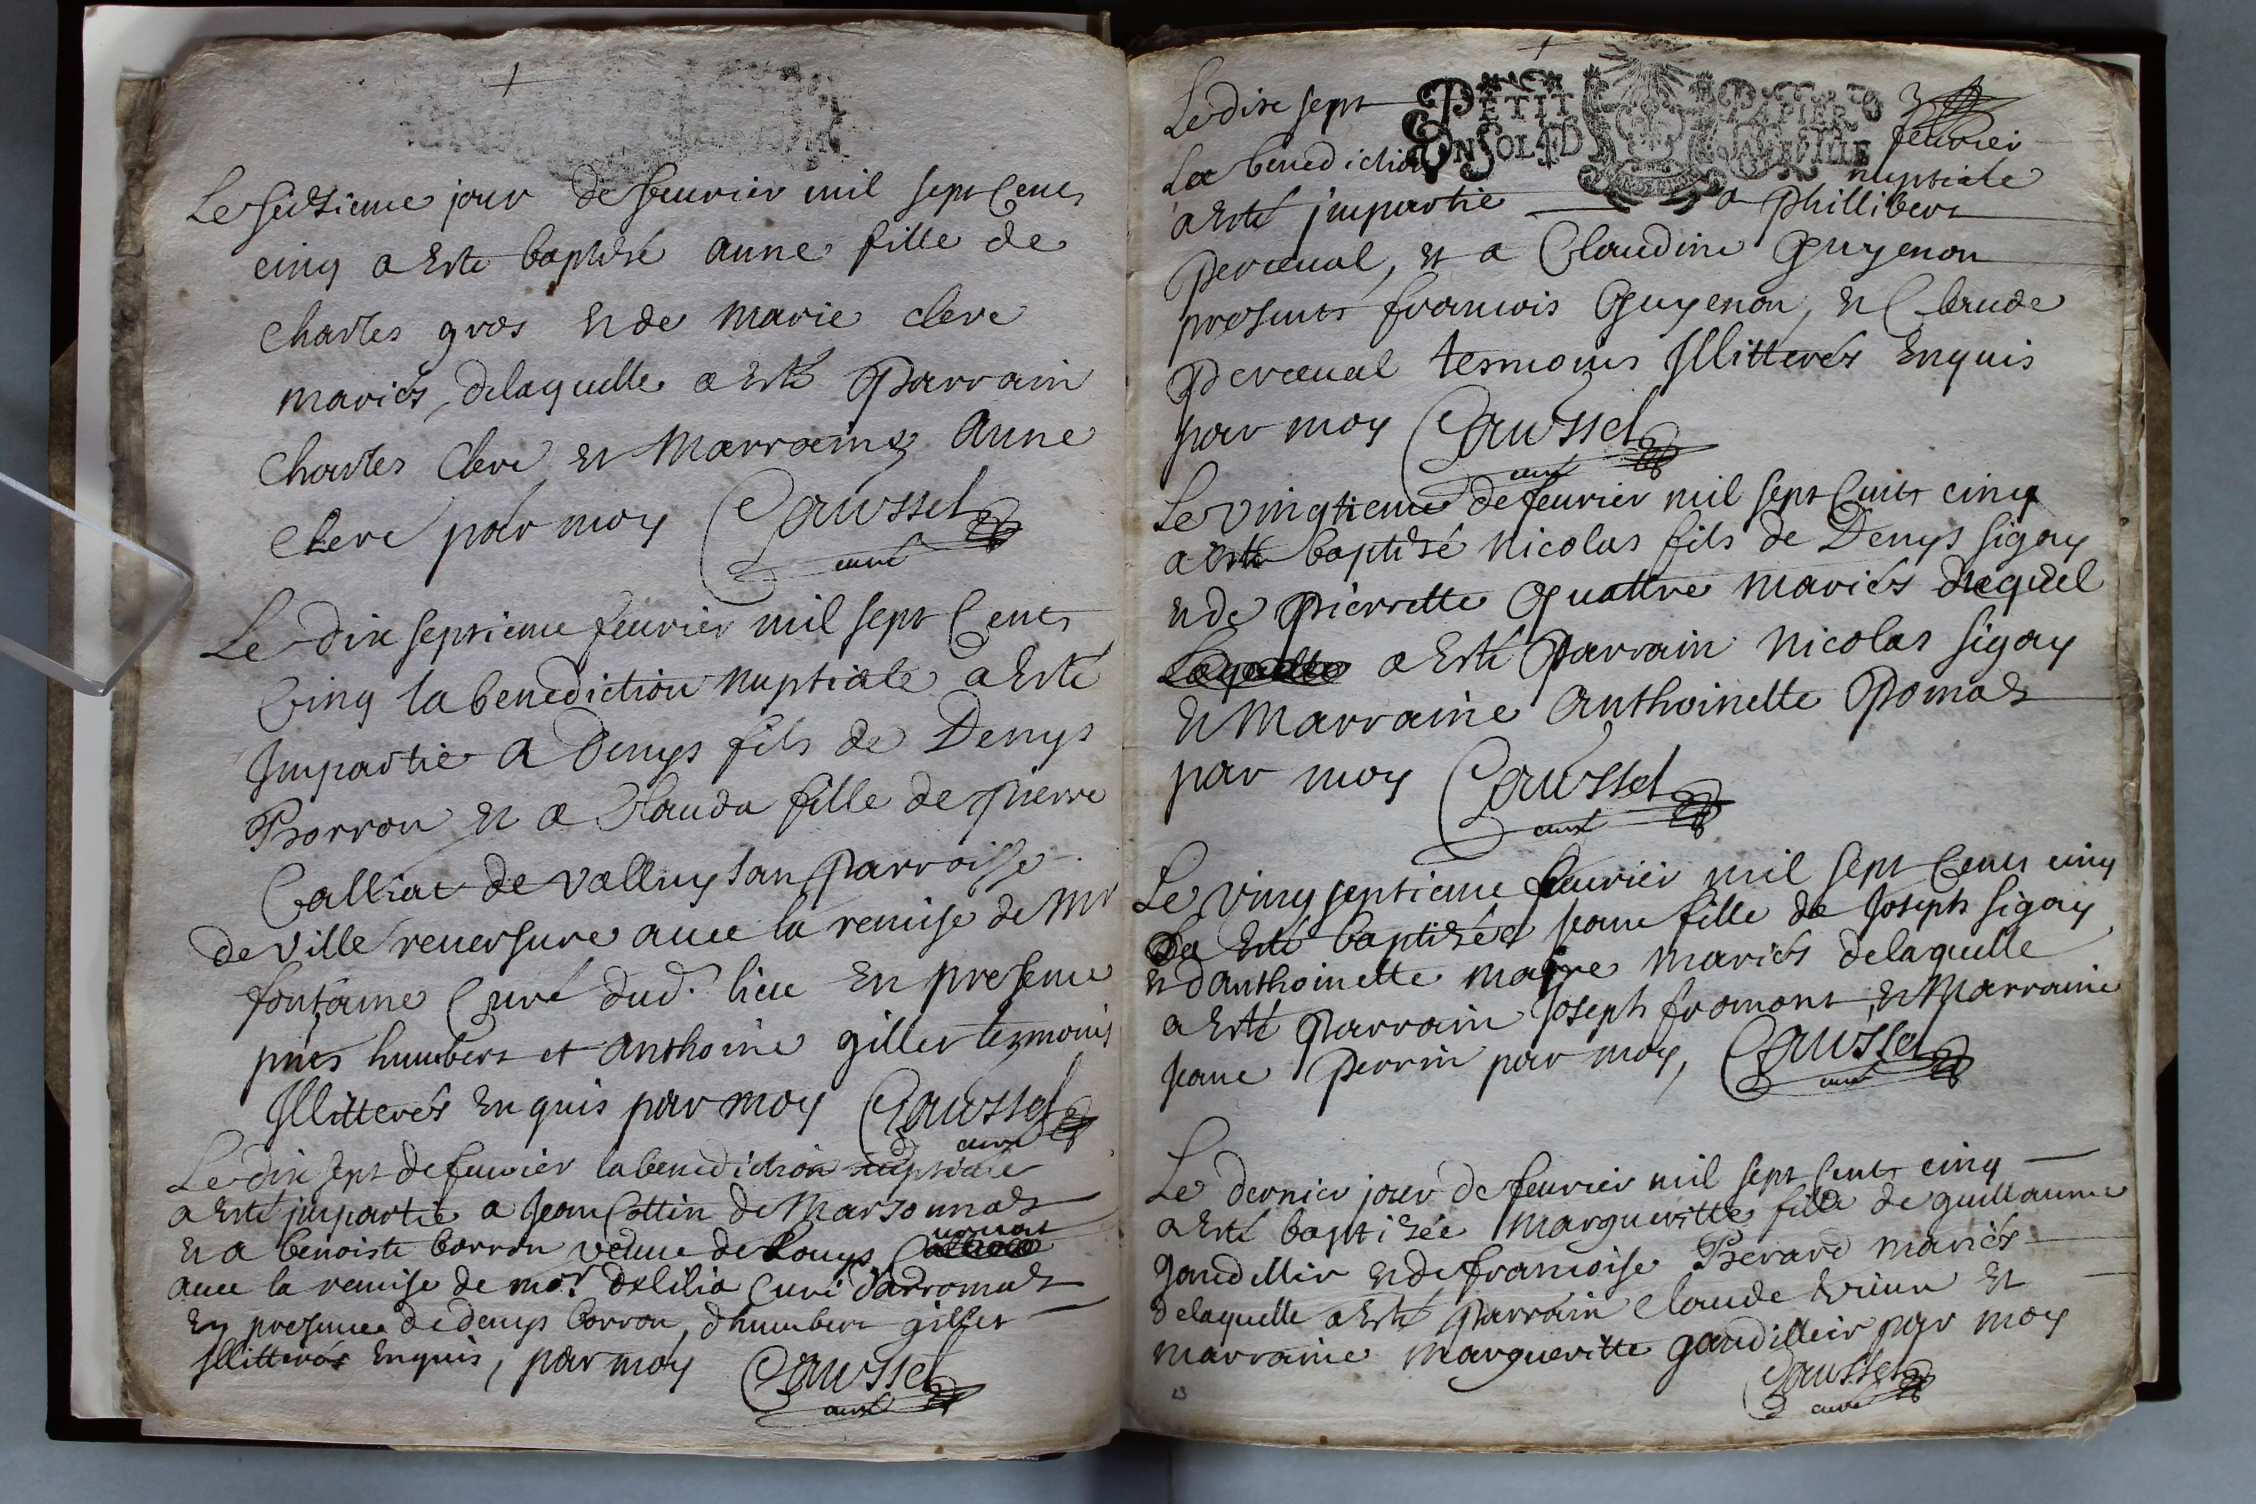 Le seiziême jour de feurier mil sept Cents
cinq a Esté baptisé anne fille de
Charles gros et de Marie clerc
mariés, delaquelle a Esté Parrain
Charles Clerc et Marraine anne
Clerc par moy Caussel
curé
Le dix septieme feurier mil sept Cents
Cinq la benediction nuptiale a Esté
Impartie a Denys fils de Denys
Borron et a Clauda fille de pierre
Calliat de valluysan Parroisse
de ville reuersure auec la remise de Mr
fontaine Curé dud. lieu En presence
humbert et anthoine gillet tesmoins
Illitterés Enquis par moy Caussel
curé
Le dix sept de feurier la benediction nuptiale
a Esté impartie a Jean Cottin de Marsonnas
et a benoiste borron veuue de Louys
auec la remise de mor. delilia Curé
En presence de denys borron, dhumbert gillet
Illitterés Enquis, par moy Caussel
curé
Le dix sept feurier
PETIT PAPIER
UN SOL
La benediction nuptiale
a Esté impartie a Phillibert
Perceual, et a Claudine Guyenon
presents francois Guyenon, et Claude
Perceual tesmoins Illitterés Enquis
par moy Caussel
curé
Le vingtieme de feurier mil sept Cents cinq
a Esté baptizé nicolas fils de Denys sigoy
et de Pierrette Quattre mariés duquel
a Esté Parrain nicolas sigoy
et Marraine Anthoinette Pomat
par moy Caussel
curé
Le Ving septieme feurier mil sept Cents cinq
a Esté baptizée Jeane fille de Joseph sigoy
et danthoinette maire mariés delaquelle
a Esté Parrain Joseph fromont, et Marraine
Jeane Perrin par moy, Caussel
curé
Le dernier jour de feurier mil sept Cents cinq
a Esté baptizée Margueritte fille de guillaume
gaudillir et de francoise Berard mariés
delaquelle a Esté Parrain Claude et
marraine margueritte gaudilleir par moy
Caussel
curé